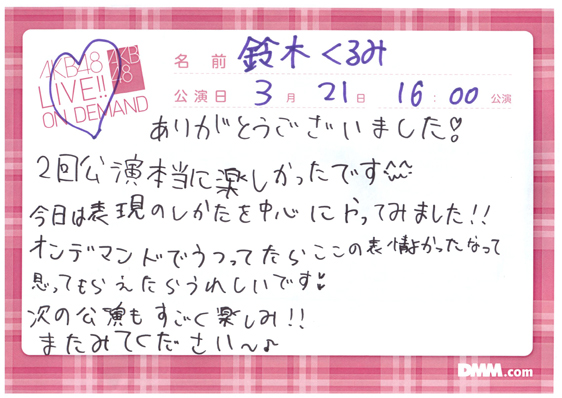 AKB48
LIVE!!
ON DEMAND
AKB
48
名前 鈴木くるみ
公演日 3月21日 16:00 公演
ありがとうございました!
2回公演本当に楽しかったです
今日は表現のしかたを中心にやってみました!!
オンデマンドでうつってたらここの表情よかったなって
思ってもらえたらうれしいです
次の公演もすごく楽しみ!!
またみてください〜♪
DMM.com